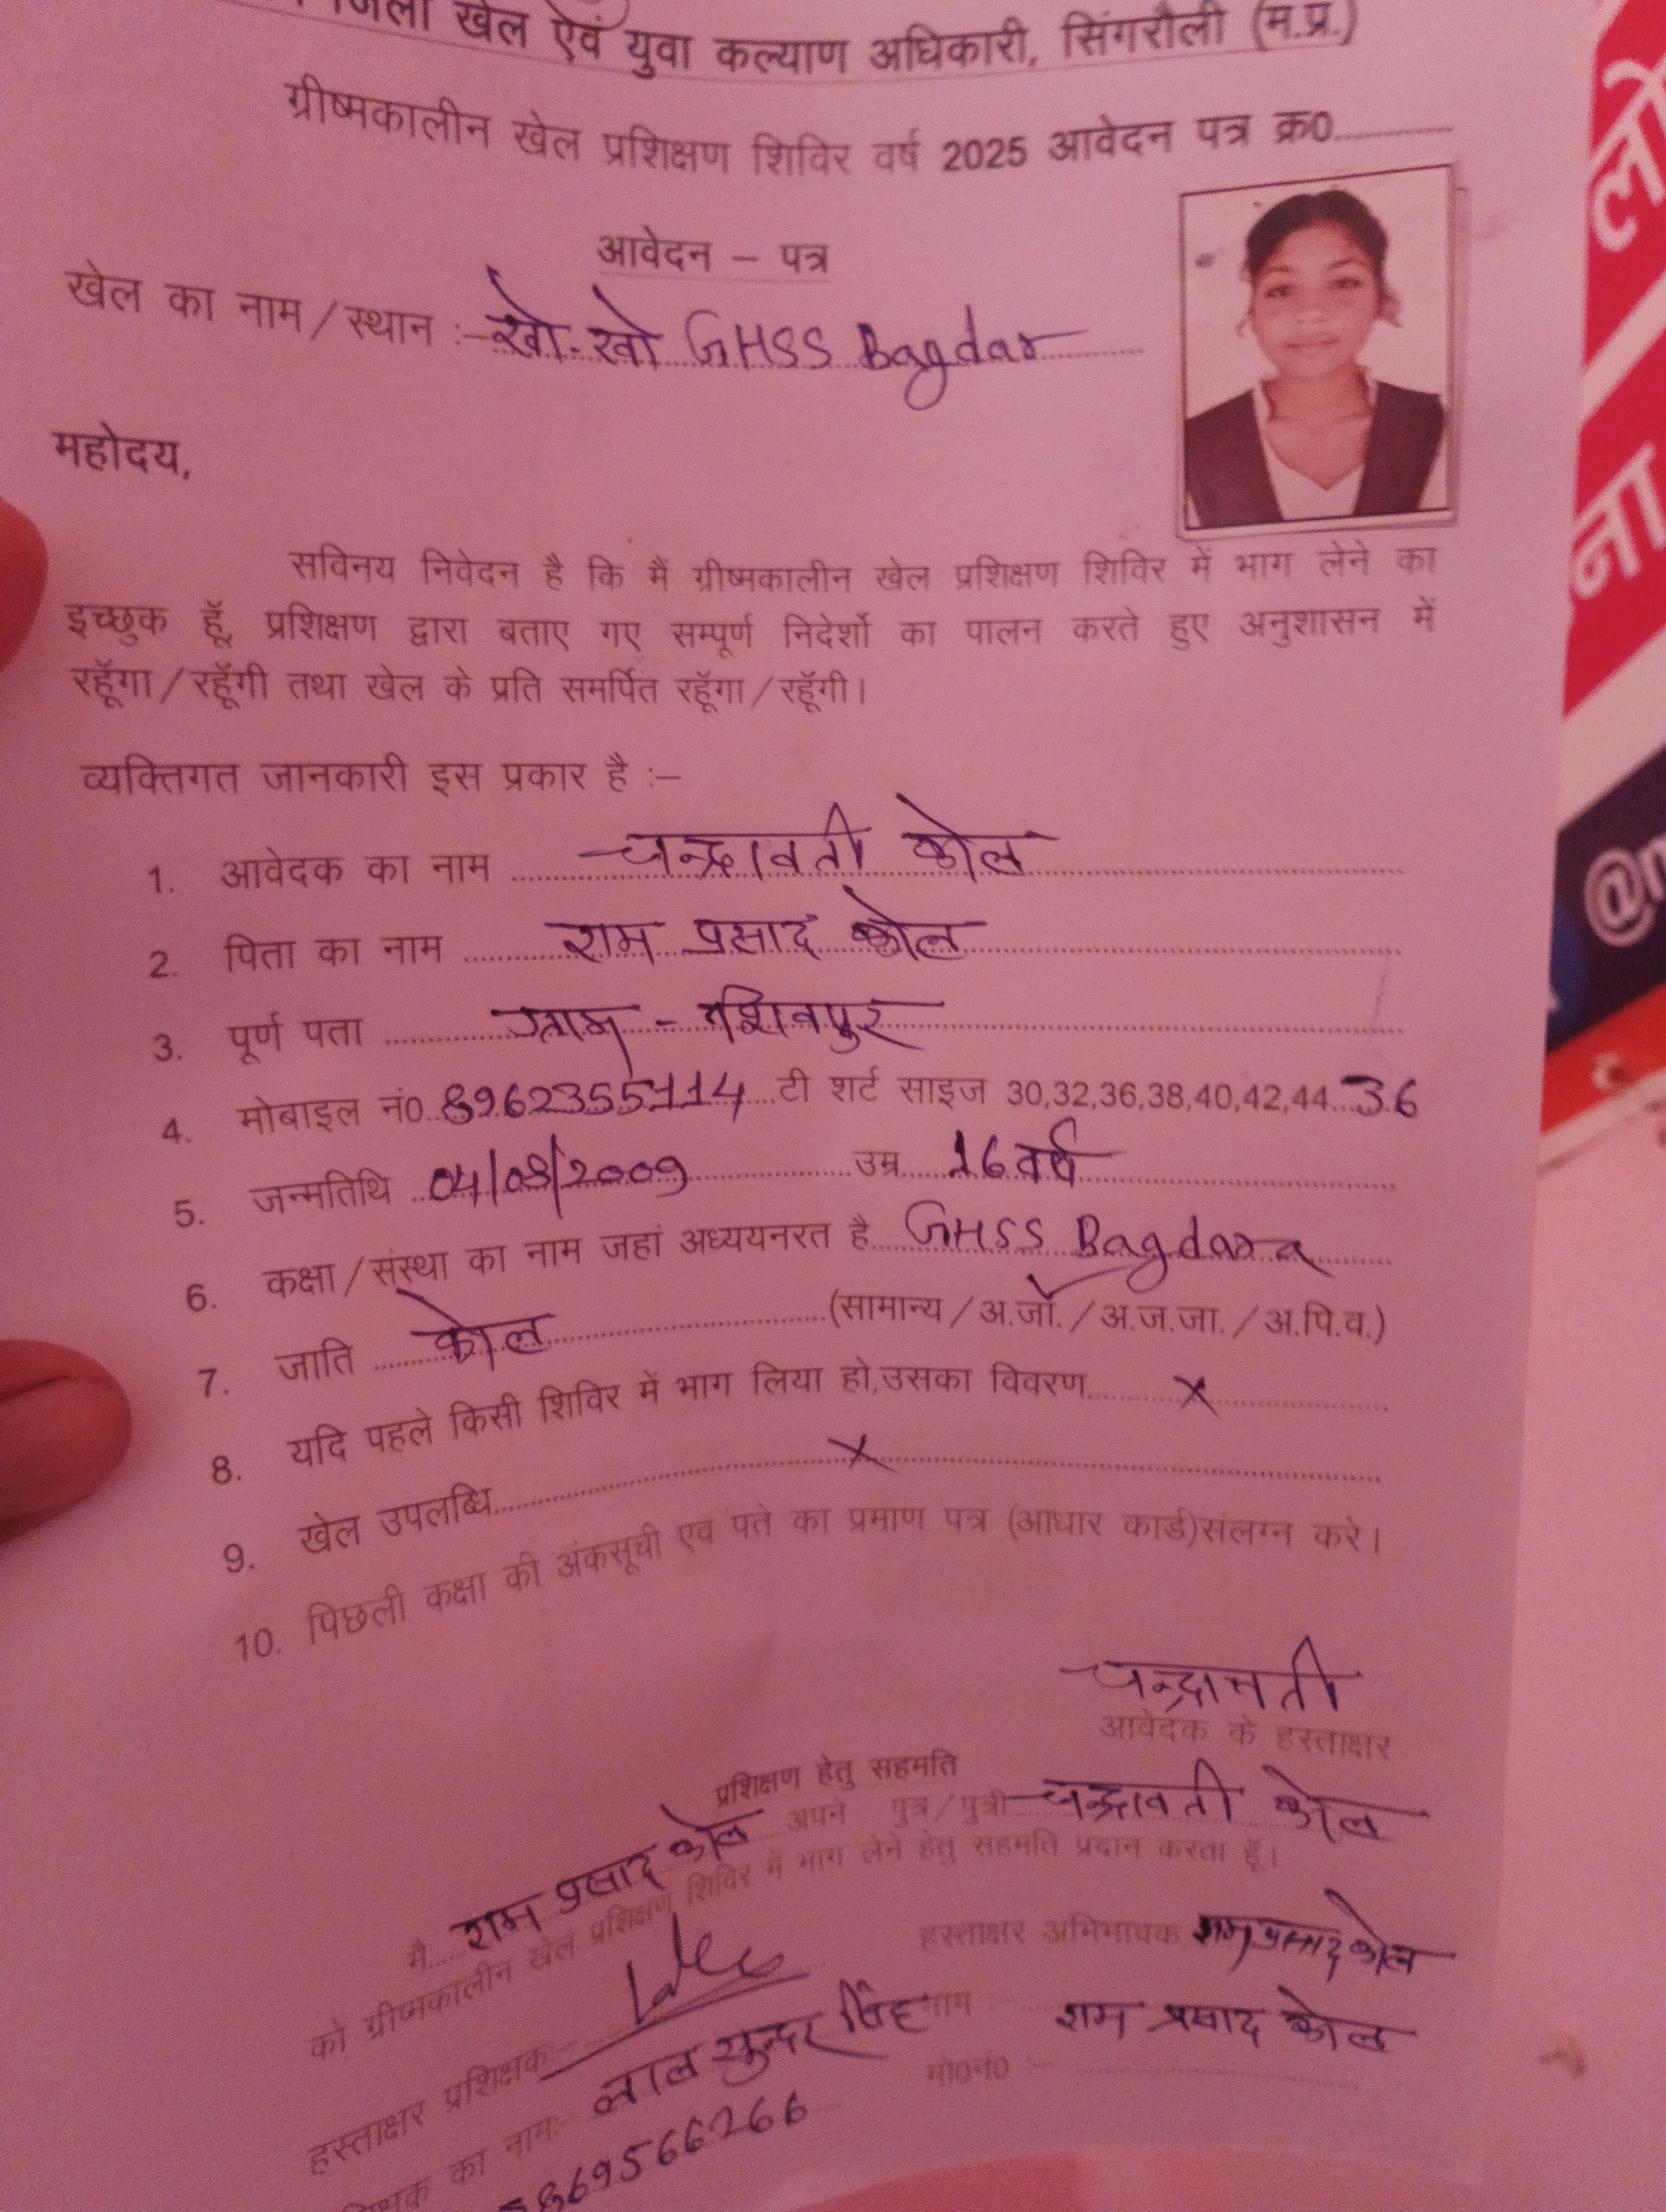 जिला खेल एवं युवा कल्याण अधिकारी, सिंगरौली (म.प्र.)
ग्रीष्मकालीन खेल प्रशिक्षण शिविर वर्ष 2025 आवेदन पत्र क्र0
आवेदन – पत्र
खेल का नाम/स्थान :– खो-खो GHSS Bagdar
महोदय,
सविनय निवेदन है कि मैं ग्रीष्मकालीन खेल प्रशिक्षण शिविर में भाग लेने का
इच्छुक हूँ, प्रशिक्षण द्वारा बताए गए सम्पूर्ण निदेर्शो का पालन करते हुए अनुशासन में
रहूँगा/रहूँगी तथा खेल के प्रति समर्पित रहूँगा/रहूँगी।
व्यक्तिगत जानकारी इस प्रकार है :–
1. आवेदक का नाम चन्द्रावती कोल
2. पिता का नाम राम प्रसाद कोल
3. पूर्ण पता ग्राम -
4. मोबाइल नं0 8962355114 टी शर्ट साइज 30,32,36,38,40,42,44 36
5. जन्मतिथि 04/08/2009 उम्र 16 वर्ष
6. कक्षा/संस्था का नाम जहां अध्ययनरत है GHSS Bagdara
7. जाति कोल (सामान्य/अ.जा./अ.ज.जा./अ.पि.व.)
8. यदि पहले किसी शिविर में भाग लिया हो,उसका विवरण x
9. खेल उपलब्धि x
10. पिछली कक्षा की अंकसूची एव पते का प्रमाण पत्र (आधार कार्ड)संलग्न करे।
चन्द्रावती
आवेदक के हस्ताक्षर
प्रशिक्षण हेतु सहमति
मै राम प्रसाद कोल अपने पुत्र/पुत्री चन्द्रावती कोल
को ग्रीष्मकालीन खेल प्रशिक्षण शिविर में भाग लेने हेतु सहमति प्रदान करता हूँ।
हस्ताक्षर अभिभावक राम प्रसाद कोल
हस्ताक्षर प्रशिक्षक:–
नाम :– राम प्रसाद कोल
का नाम:– लाल सुन्दर सिंह
मो0नं0 :–
869566266
@
लो
ना